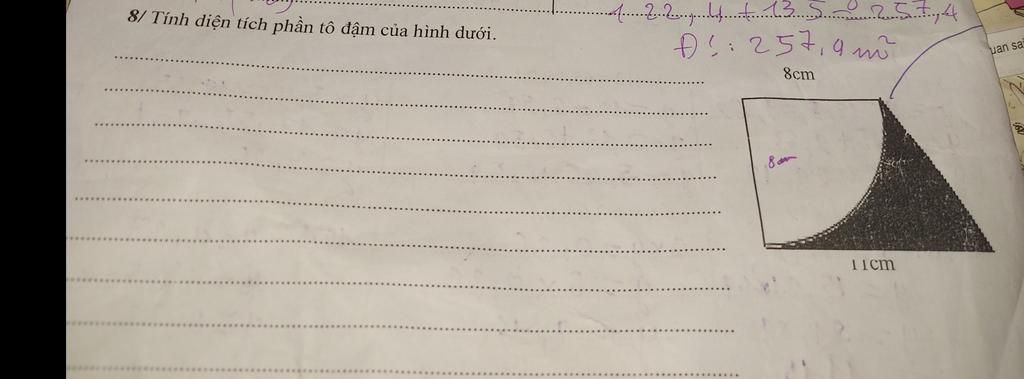 1 22,4 + 135 = 257,4
8/ Tính diện tích phần tô đậm của hình dưới.
Đ!: 257,9 m²
uan sa
8cm
8cm
11cm